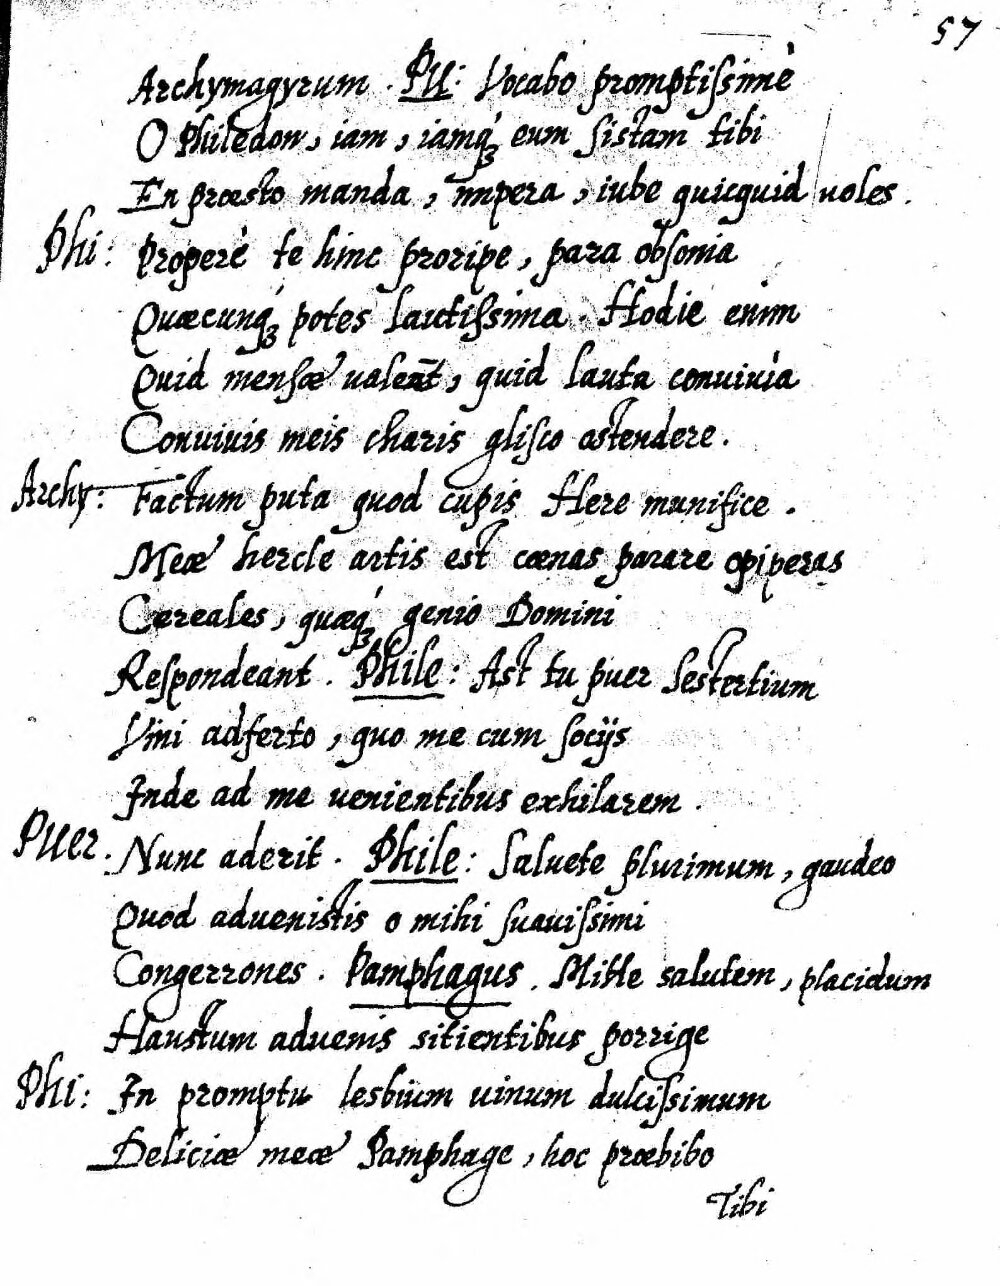 57
Archymagyrum . Pu: Vocabo promptiſsimè
O Philedon, iam, iamq́ꝫ eum ſistam tibi
En præsto manda, impera, iube quicquid uoles.
Phi: Properè te hinc proripe, para obſonia
Quæcunq́ꝫ potes lautiſsima. Hodie enim
Quid menſæ ualeāt, quid lauta conuiuia
Conuiuis meis charis gliſco ostendere.
Archy: Factum puta quod cupis Here munifice.
Meæ hercle artis est cœnas parare opiperas
Cereales, quæq́ꝫ genio Domini
Reſpondeant. Phile: Ast tu puer Sestertium
Vini adferto, quo me cum ſocijs
Inde ad me uenientibus exhilarem.
Puer. Nunc aderit. Phile: Saluete plurimum, gaudeo
Quod aduenistis o mihi ſuauiſsimi
Congerrones. Pamphagus. Mille salutem, placidum
Haustum aduenis sitientibus porrige
Phi: In promptu lesbium uinum dulciſsimum
Deliciæ meæ Pamphage, hoc præbibo
Tibi